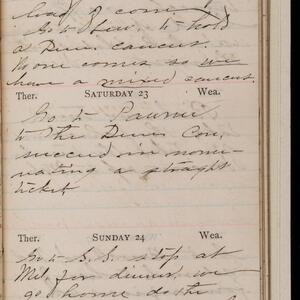 load of corn
Go to to hold
a Dem. caucus.
No one comes so we
have a mixed caucus.
Ther. SATURDAY 23 Wea.
Go to Pawnee
to the Dem Con,
succeed in nomi-
nating a straight
ticket
Ther. SUNDAY 24 Wea.
Go to S. S. stop at
for dinner, we
go home do the